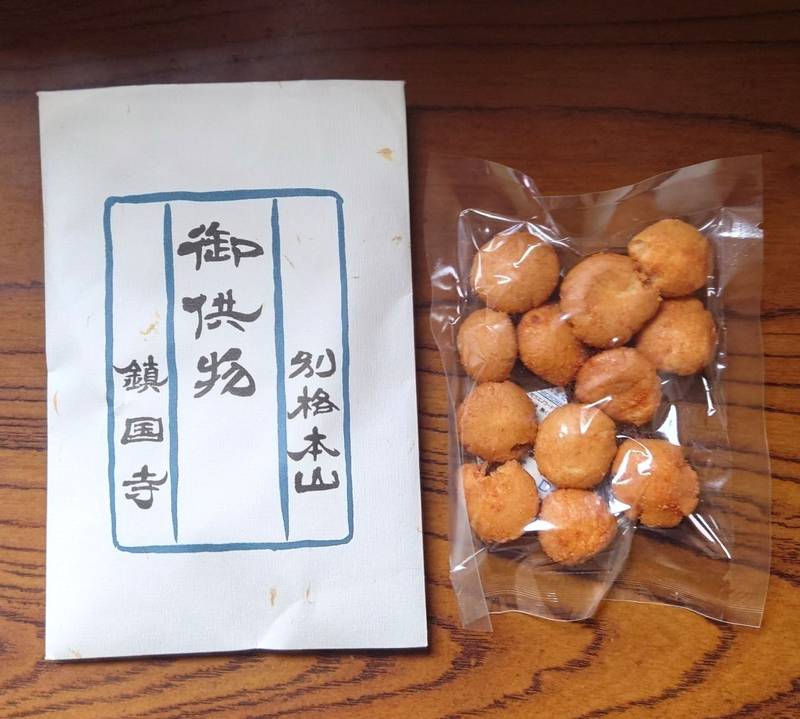 別格本山
御供物
鎮国寺